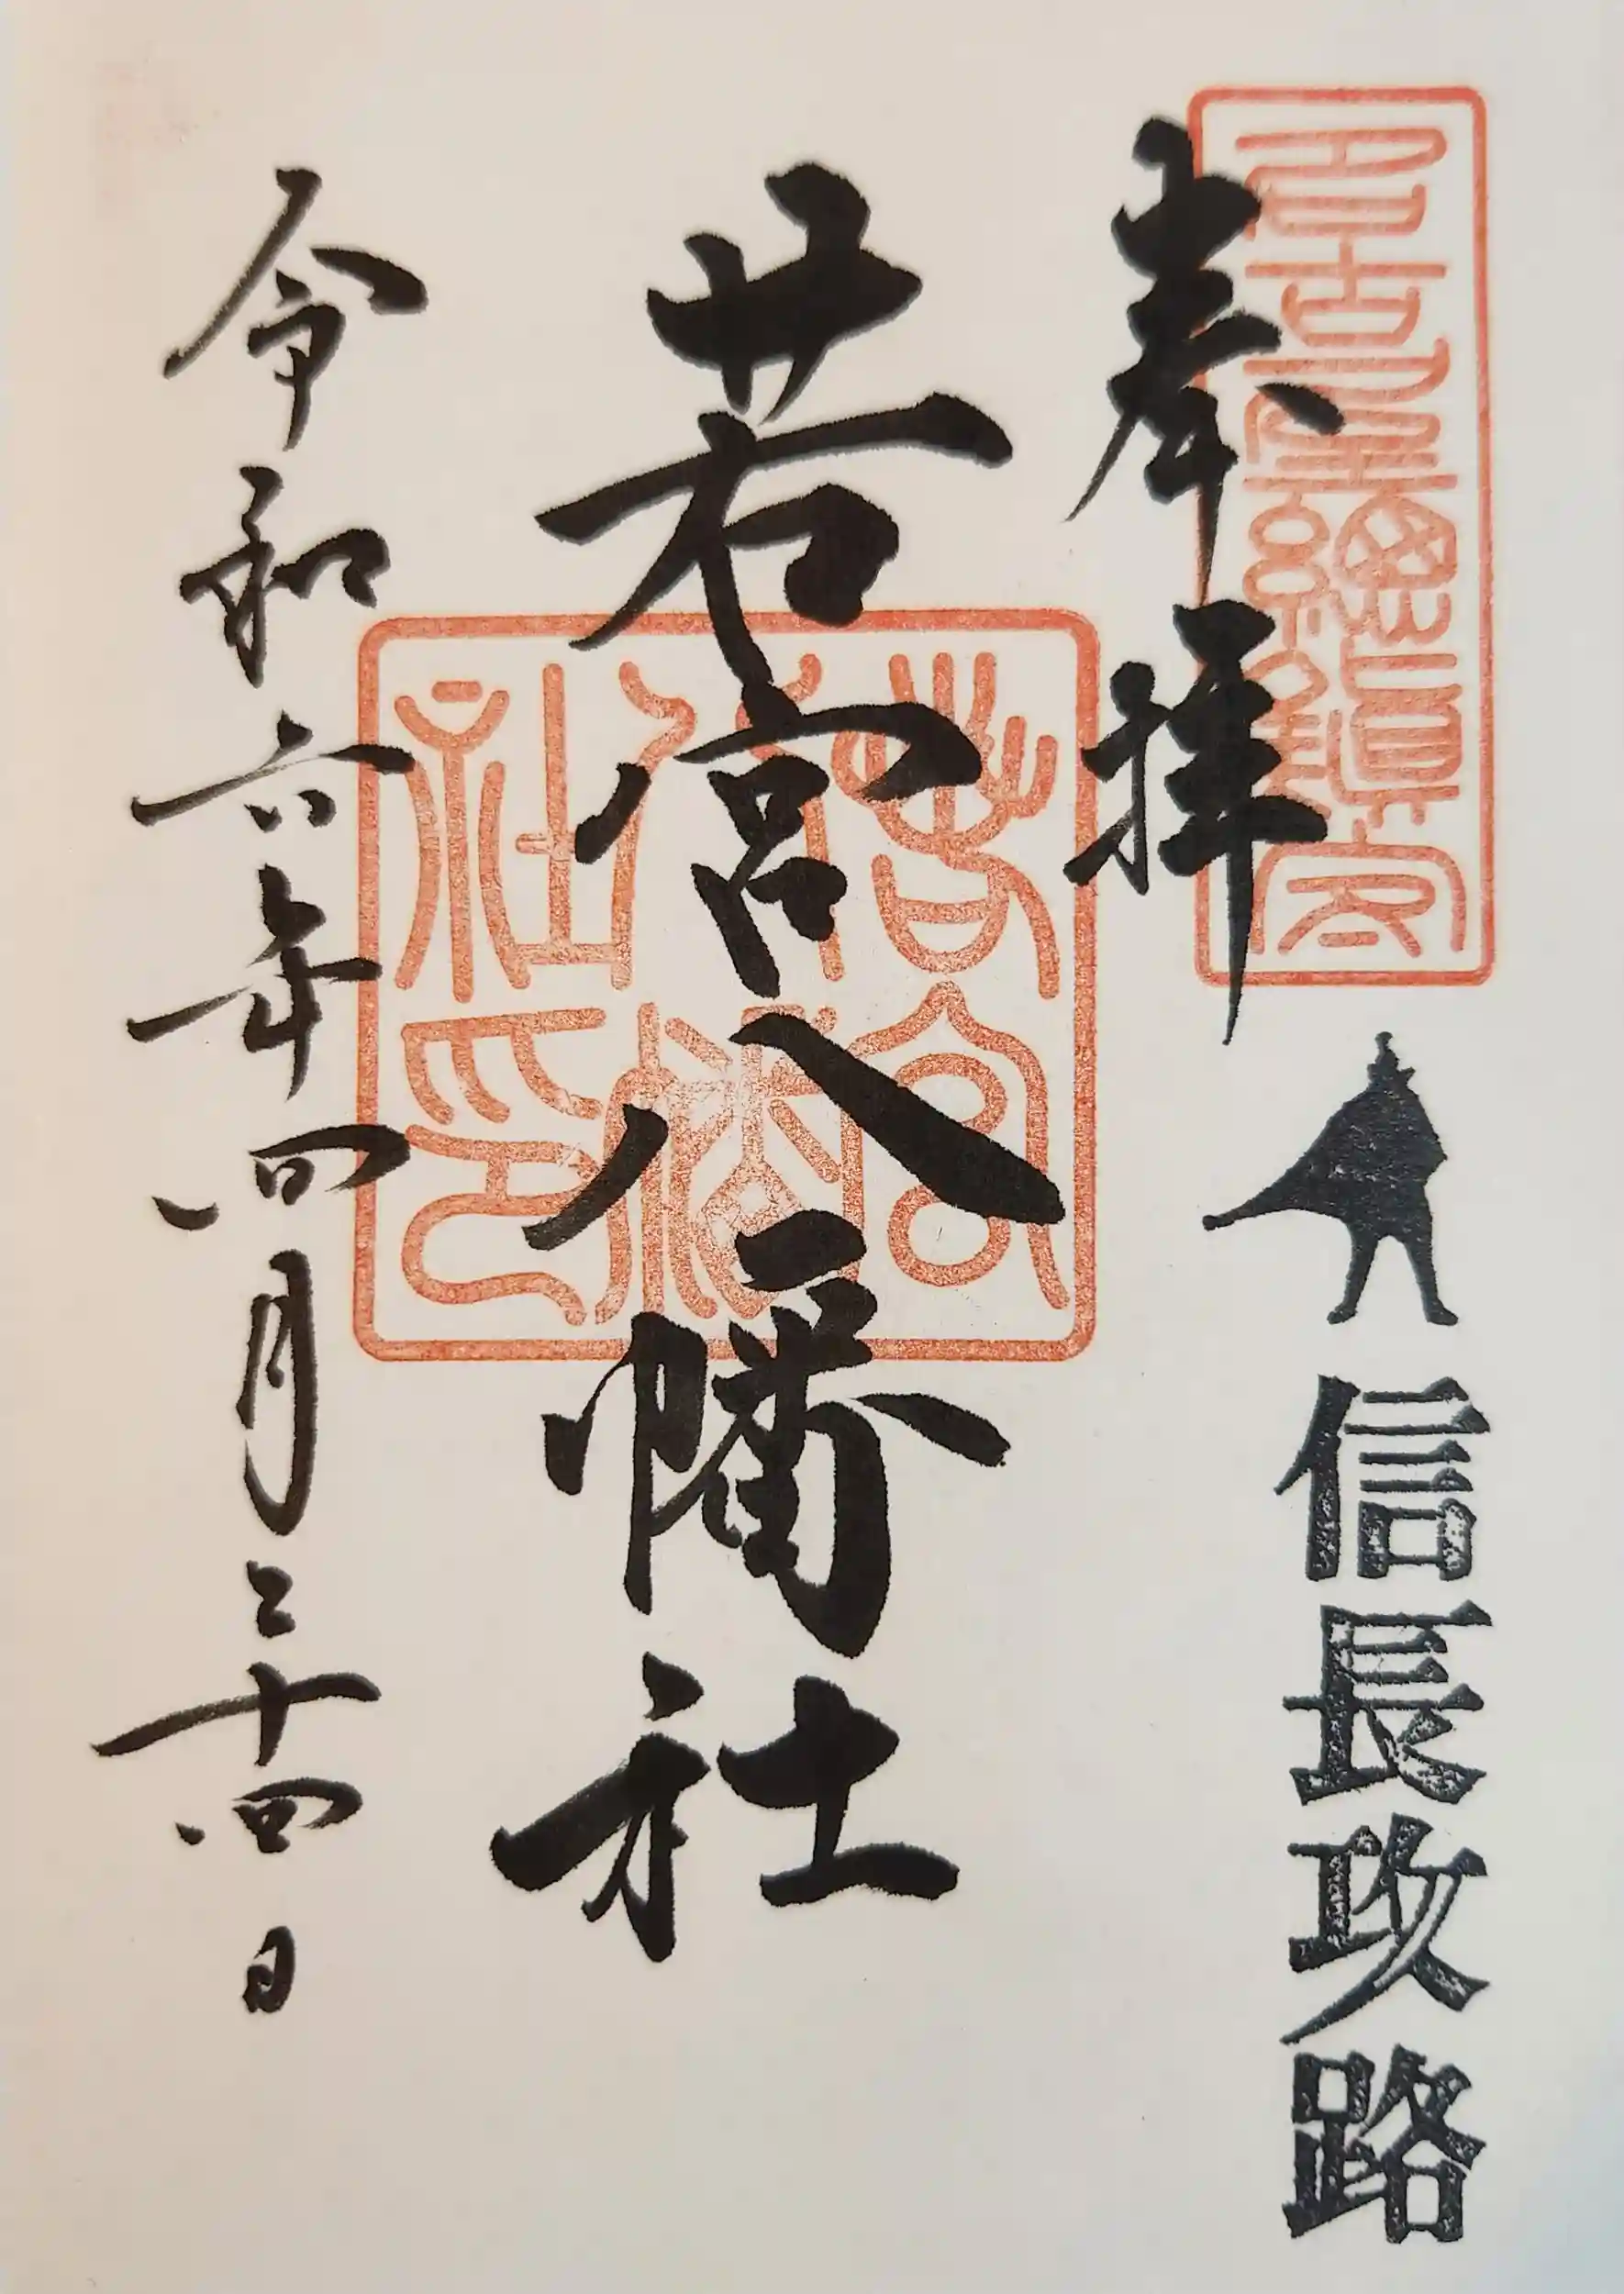 名古屋總鎮守
奉拝
信長攻路
若宮八幡社
若宮八幡社印
令和六年四月二十四日